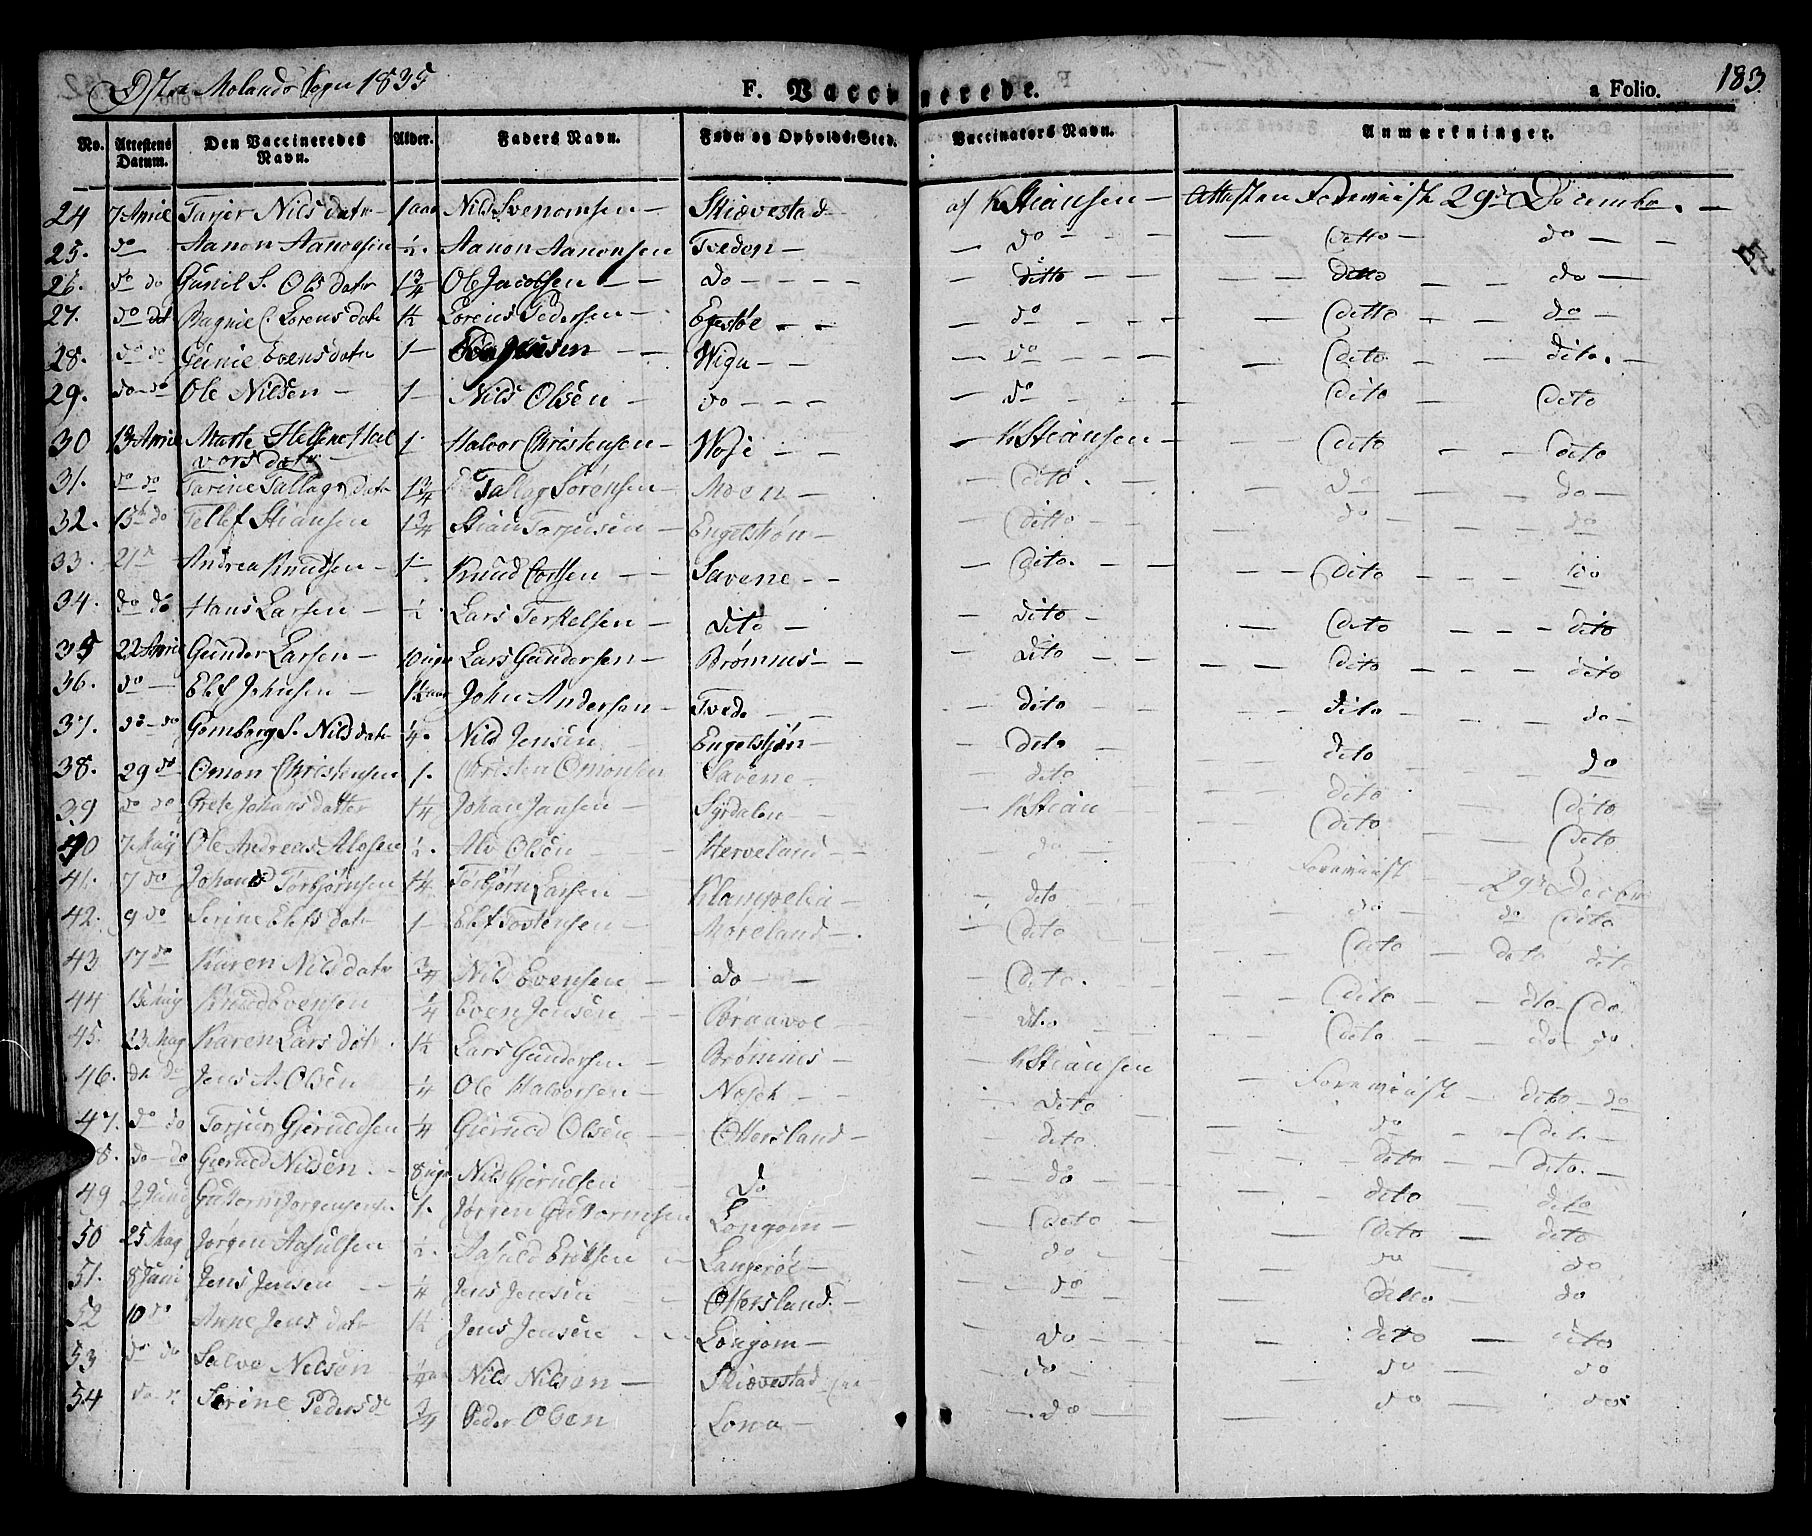 Østre Molands Sogn 1835 F. Vaccinerede. a Folio. 183
No. Attestens Datum. Den Vaccineredes Navn. Alder. Faders Navn. Føde og Opholds-Sted. Vaccinators Navn. Anmærkninger.
24 7 April Tarjer Nils datr 1 aar Nils Svenomsen Skiævestad af KStiansen Attesten Foreviist 29de Decembr.
25. do Aanon Aanonsen ½. Aanon Aanonsen Tveden do ditto do
26. do do Gunil S. Ols datr 1¾ Ole Jacobsen do ditto ditto do
27. do do Lorens datr 1½ Lorens Pedersen do ditto do
28. do do Gunil Evens datr 1 Wiga do dito dito.
29. do do Ole Nilsen 1 Nils Olsen do do dito dito
30 13 April Marte Hellene Hal 1 Halvor Christensen Woje KStiansen dito dito
vors datr
31. do do Tarine Tallags datr 1¾ Tallag Sørensen Moen dito. do do
32. 15de do Tellef Stiansen 1¾ Stian Torjusen Engelshøn ditto do do
33. 21de Andrea Knudsen 1 Knud Savene dito. dito do
34. do do Hans Larsen ½ Lars Terkelsen dito dito dito dito
35 22 April Gunder Larsen 10 uger Lars Gundersen Brømnes dito dito dito
36. do Elef Johnsen 1½ aar John Andersen Tvede dito dito do
37. do do Gomborg S. Nils datr ¼. Nils Jensen Engelshøn dito dito do
38. 29 do Omon Christensen 1. Christen Omonsen Savene dito dito dito
39 do do Grete Johans datter 1¼ Johan Jansen Syrdalen KStian dito dito
40 7 Maij Ole Andreas Alosen ½. Alv Olsen Herveland do Foreviist 29de Decebr
41. 7 do Johans Torbjørnsen 1¼ Torbjørn Larsen dito do do dito
42. 9 do Serine Elefs datr 1 Elef Tostensen Moreland dito dito dito dito
43 17 do Karen Nils datr ¾ Nils Evensen do dito. dito dito do
44 15 Maij Knud Evensen ¼ Even Jensen dito dito do do.
45. 23 Maij Karen Lars datr. 1½ Lars Gundersen Brømnes KStiansen Foreviist dito do
46. do do Jens A. Olsen ¼ Ole Halvorsen Neseh dito do dito
47. do do Torjur Gjeruldsen ¼ Gjerud Olsen Ottersland dito. dito dito.
48. do do Gjerud Nilsen. 8 uger Nils Gjerulsen do do dito dito
49 2 Juni Guttorm Jorgensen 1. Jørgen Guttormsen Longom dito dito dito
50 25 Maij Jørgen Aasulsen ½. Aasuld Eriksen Langerøe do do do
51. 8 Juni Jens Jensen ¼ Jens Jensen Ottersland. do dito do
52 10 do Anne Jens datr 1½ Jens Jensen Longom do dito dito
53 do do Salve Nilsen Nils Nilsen Skiævestad do do do
54 do Serine Peders dr ¾ Peder Olsen Lona do do do